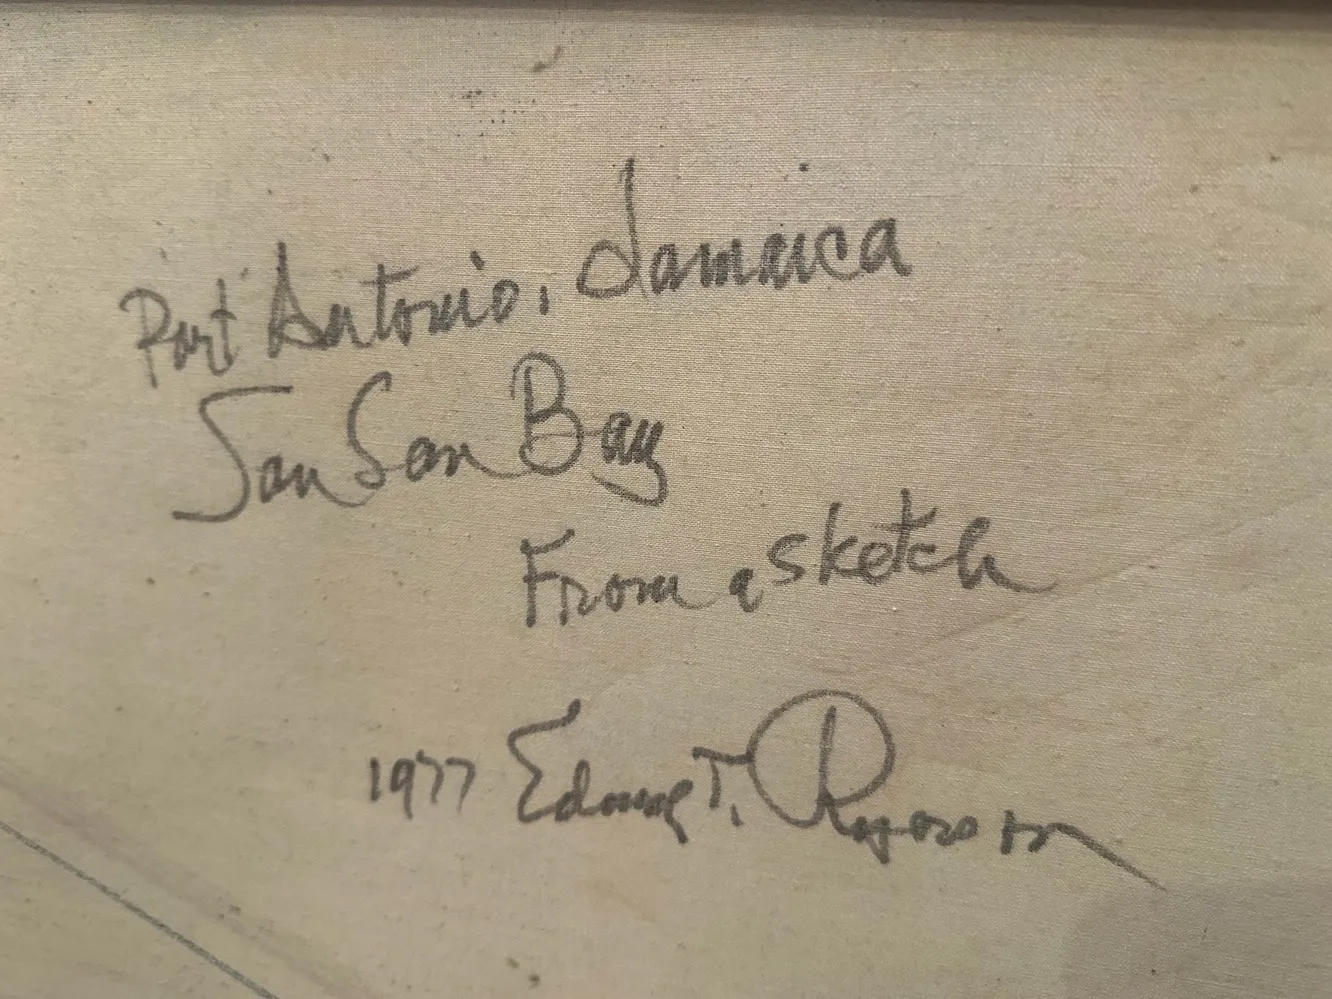 Port Antonio, Jamaica
San San Bay
From a sketch
1977 T.